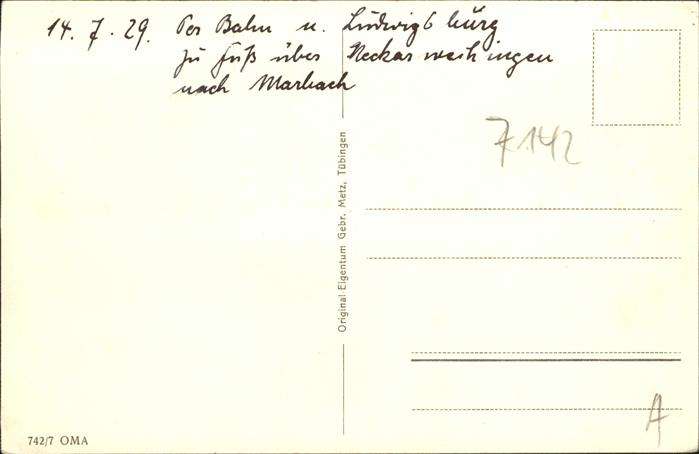 14. 7. 29. Per Bahn n. Ludwigsburg
zu Fuß über Neckarweihingen
nach Marbach
7142
Original-Eigentum Gebr. Metz, Tübingen
A
742/7 OMA